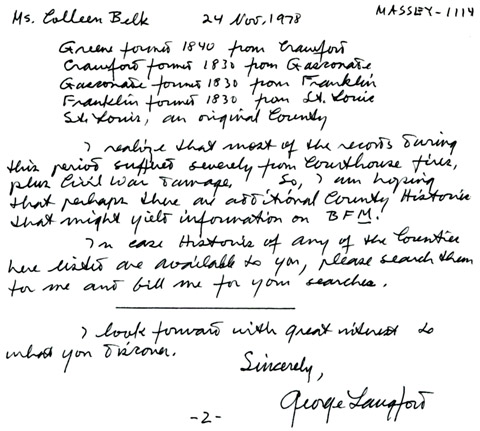 Ms. Colleen Belk 24 Nov, 1978 MASSEY-1114
Greene formed 1840 from Crawford
Crawford formed 1830 from Gasconade
Gasconade formed 1830 from Franklin
Franklin formed 1830 from St. Louis
St. Louis, an original County
I realize that most of the records during
this period suffered severely from Courthouse fires,
plus Civil War damage. So, I am hoping
that perhaps there are additional County Histories
that might yield information on BFM.
In case Histories of any of the Counties
here listed are available to you, please search them
for me and bill me for your searches.
I look forward with great interest to
what you discover.
Sincerely,
George Langford
-2-